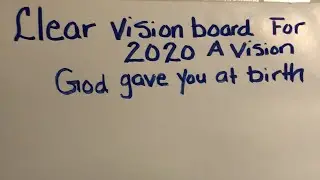 Clear Vision board For
2020 A Vision
God gave you at birth